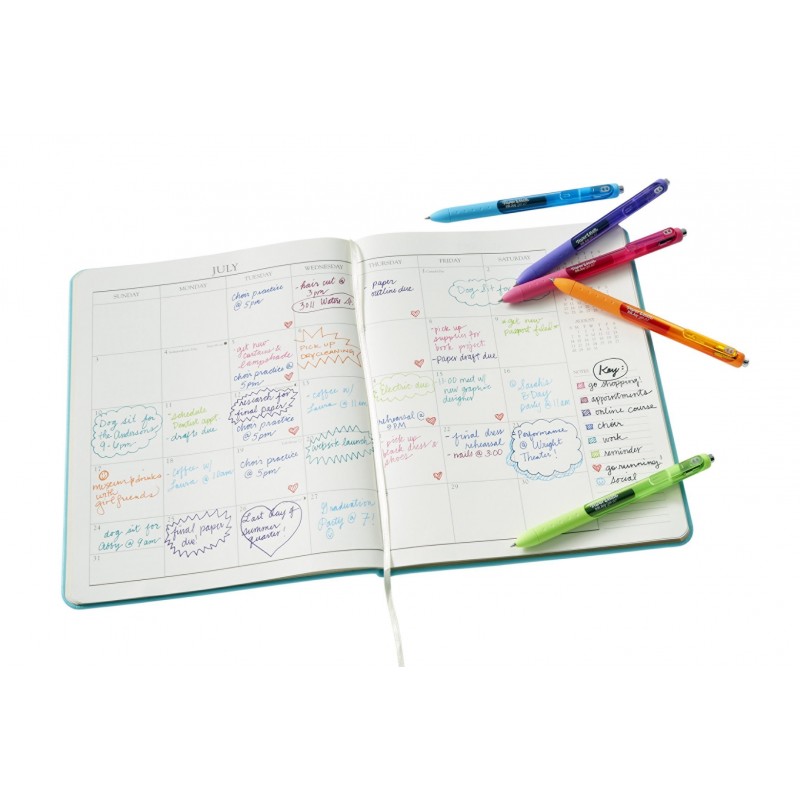 JULY
SUNDAY MONDAY TUESDAY WEDNESDAY THURSDAY FRIDAY SATURDAY
choir practice
@ 5pm
hair cut @
3pm
paper
outline due
Dog sit for
get new
lampshade
choir practice @
5pm
PICK UP
DRY CLEANING
pick up
supplies for
book project
paper draft due
get new
Dog sit for
the Andersons
9-6pm
schedule
drafts due
research for
final paper
choir practice
@ 5pm
coffee w/
Laura @ 11am
due
rehearsal @
8PM
11:00 meet w/
new graphic
designer
@ Sarah's
B Day
party @ 11am
17
with
girlfriends
coffee w/
Laura @ 11am
choir practice
@ 5pm
website launch
pick up
black dress &
shoes
final dress
rehearsal
nails @ 3:00
Performance
@ Wright
Theater!
24
dog sit for
Abby @ 9am
final paper
due!
Last day of
summer
quarter!
Graduation
Party @ 7!
31
29
30
AUGUST
Key:
go shopping!
appointments
online course
choir
work
reminder
go running!
social